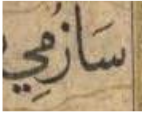 سَازْمِي